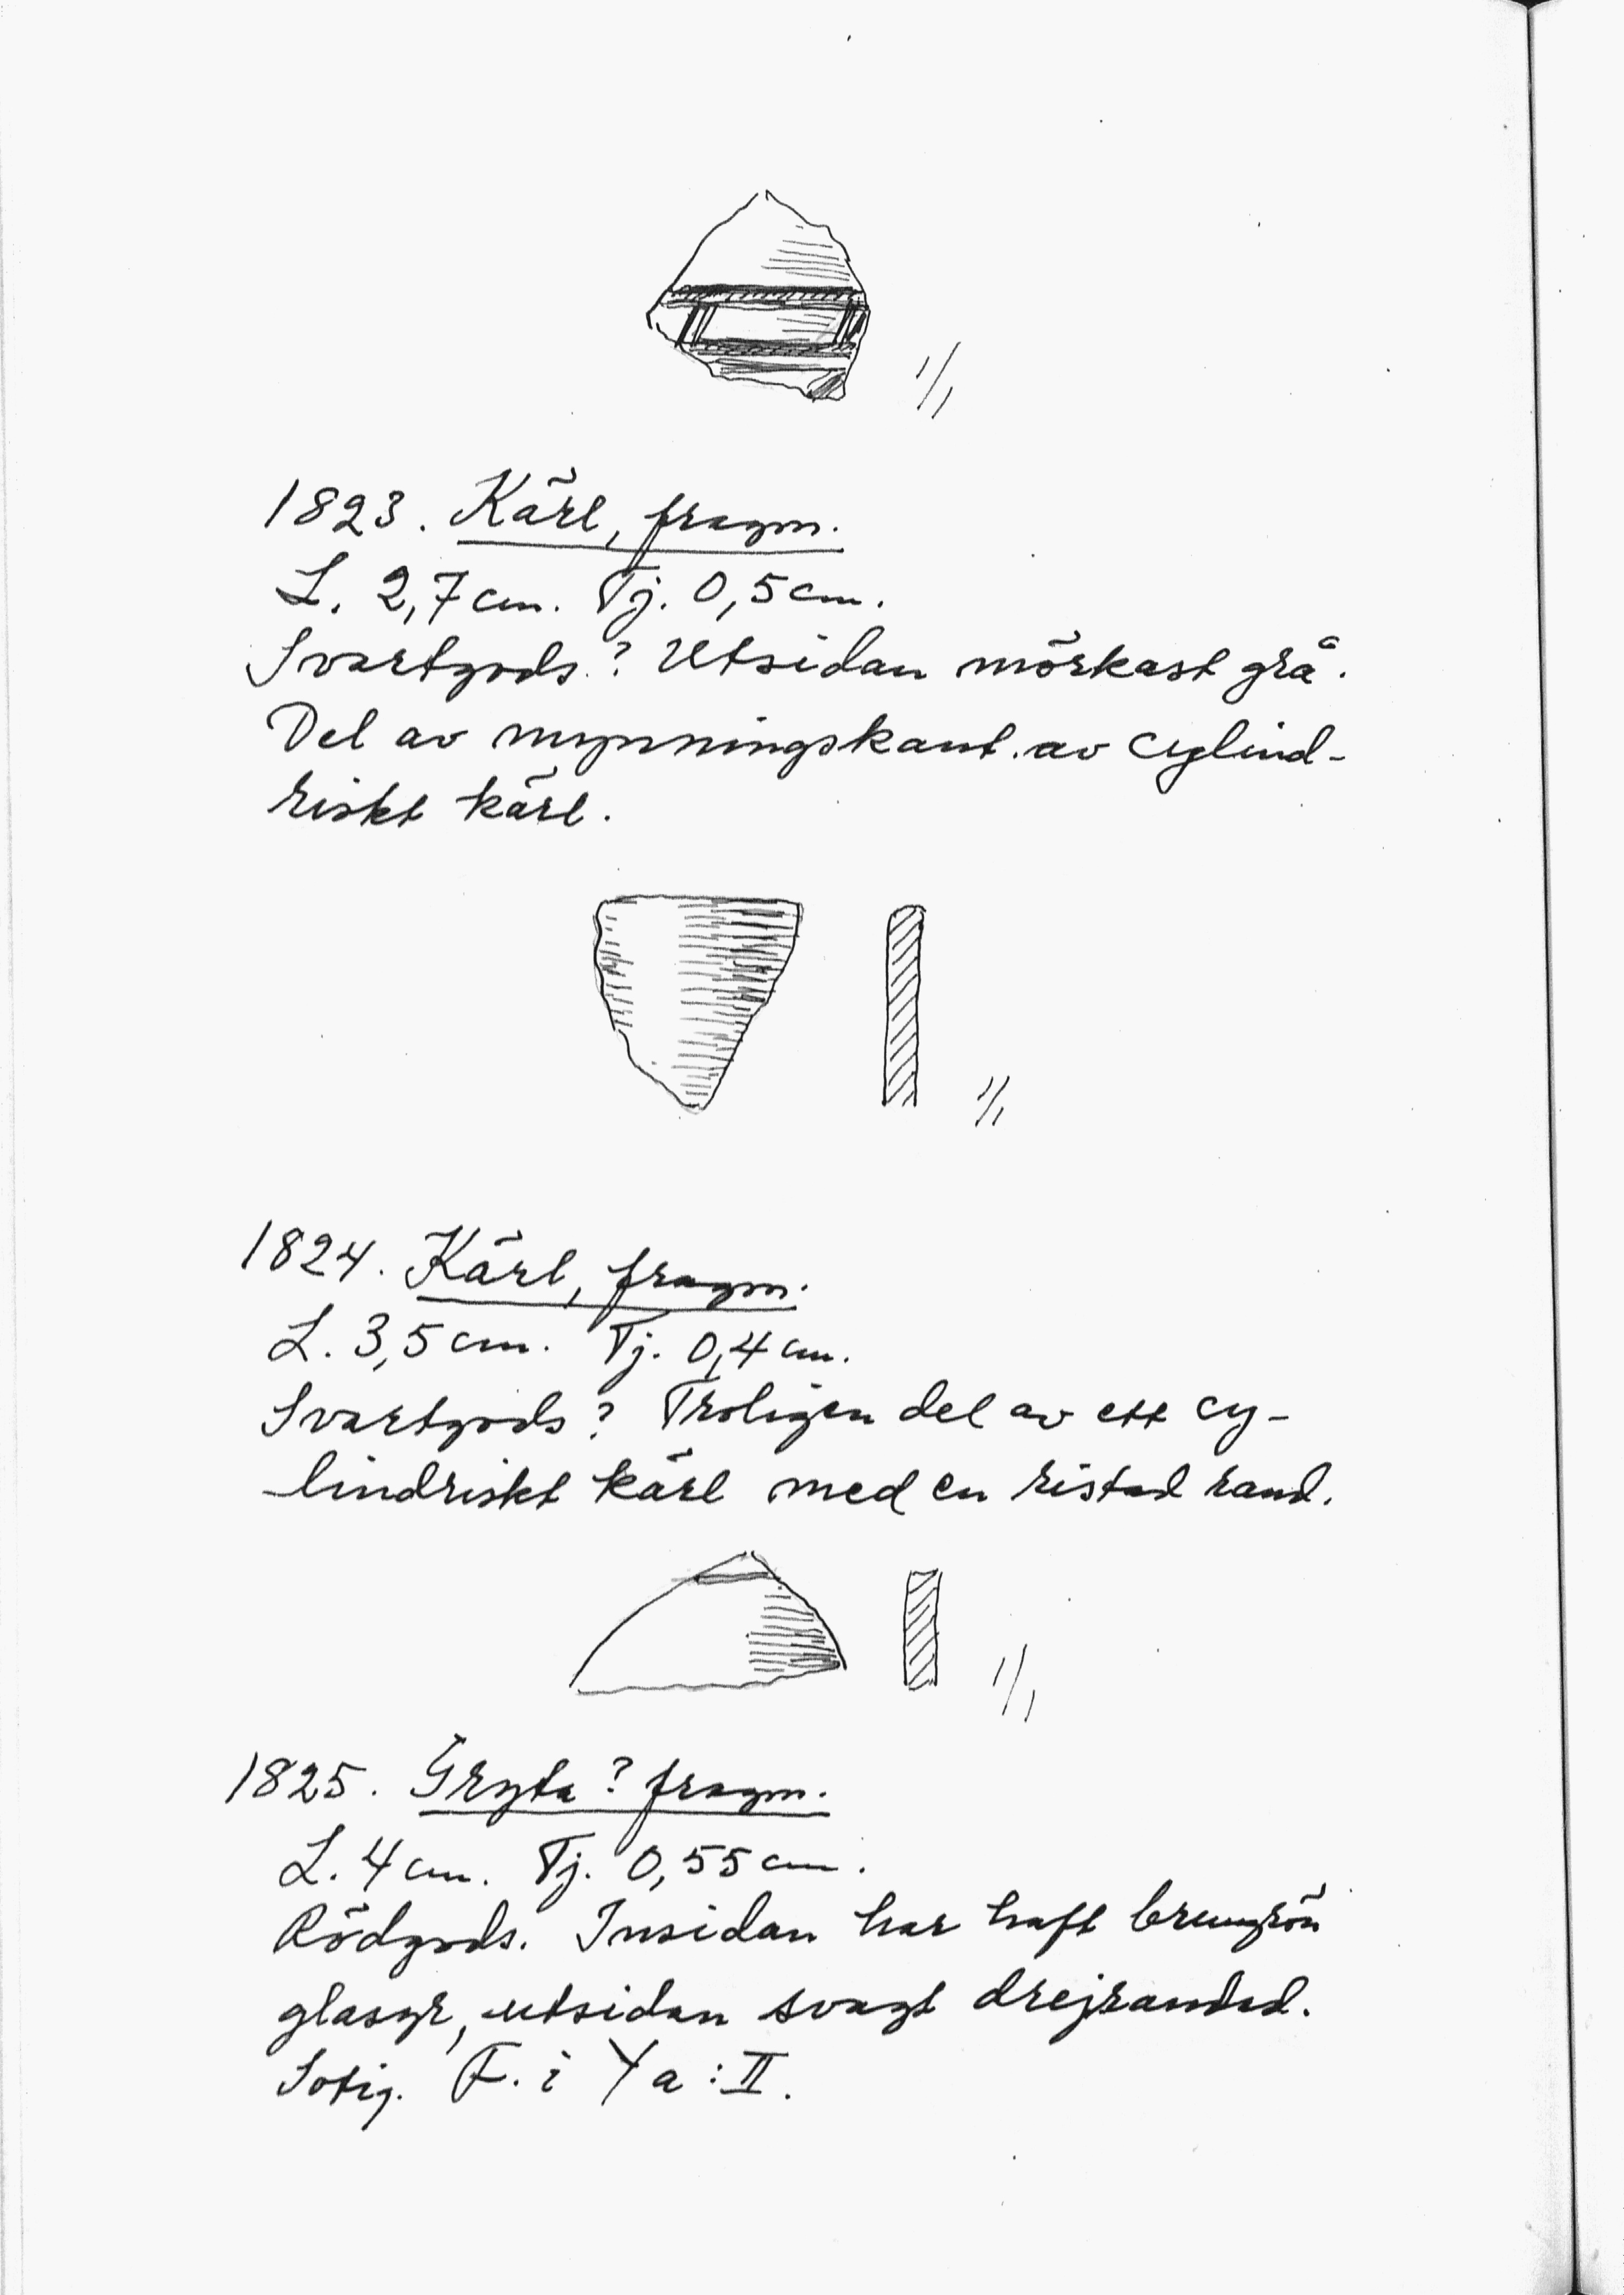 1/1
1823. Kärl, fragm.
L. 2,7 cm. Tj. 0,5 cm.
Svartgods? Utsidan mörkast grå.
Del av mynningskant av cylind-
riskt kärl.
1/1
1824. Kärl, fragm.
L. 3,5 cm. Tj. 0,4 cm.
Svartgods? Troligen del av ett cy-
lindriskt kärl med en ristad rand.
1/1
1825. Gryta? fragm.
L. 4 cm. Tj. 0,55 cm.
Rödgods. Insidan har haft brungrön
glasyr, utsidan svagt drejrandad.
Sotig. F. i Ya:II.